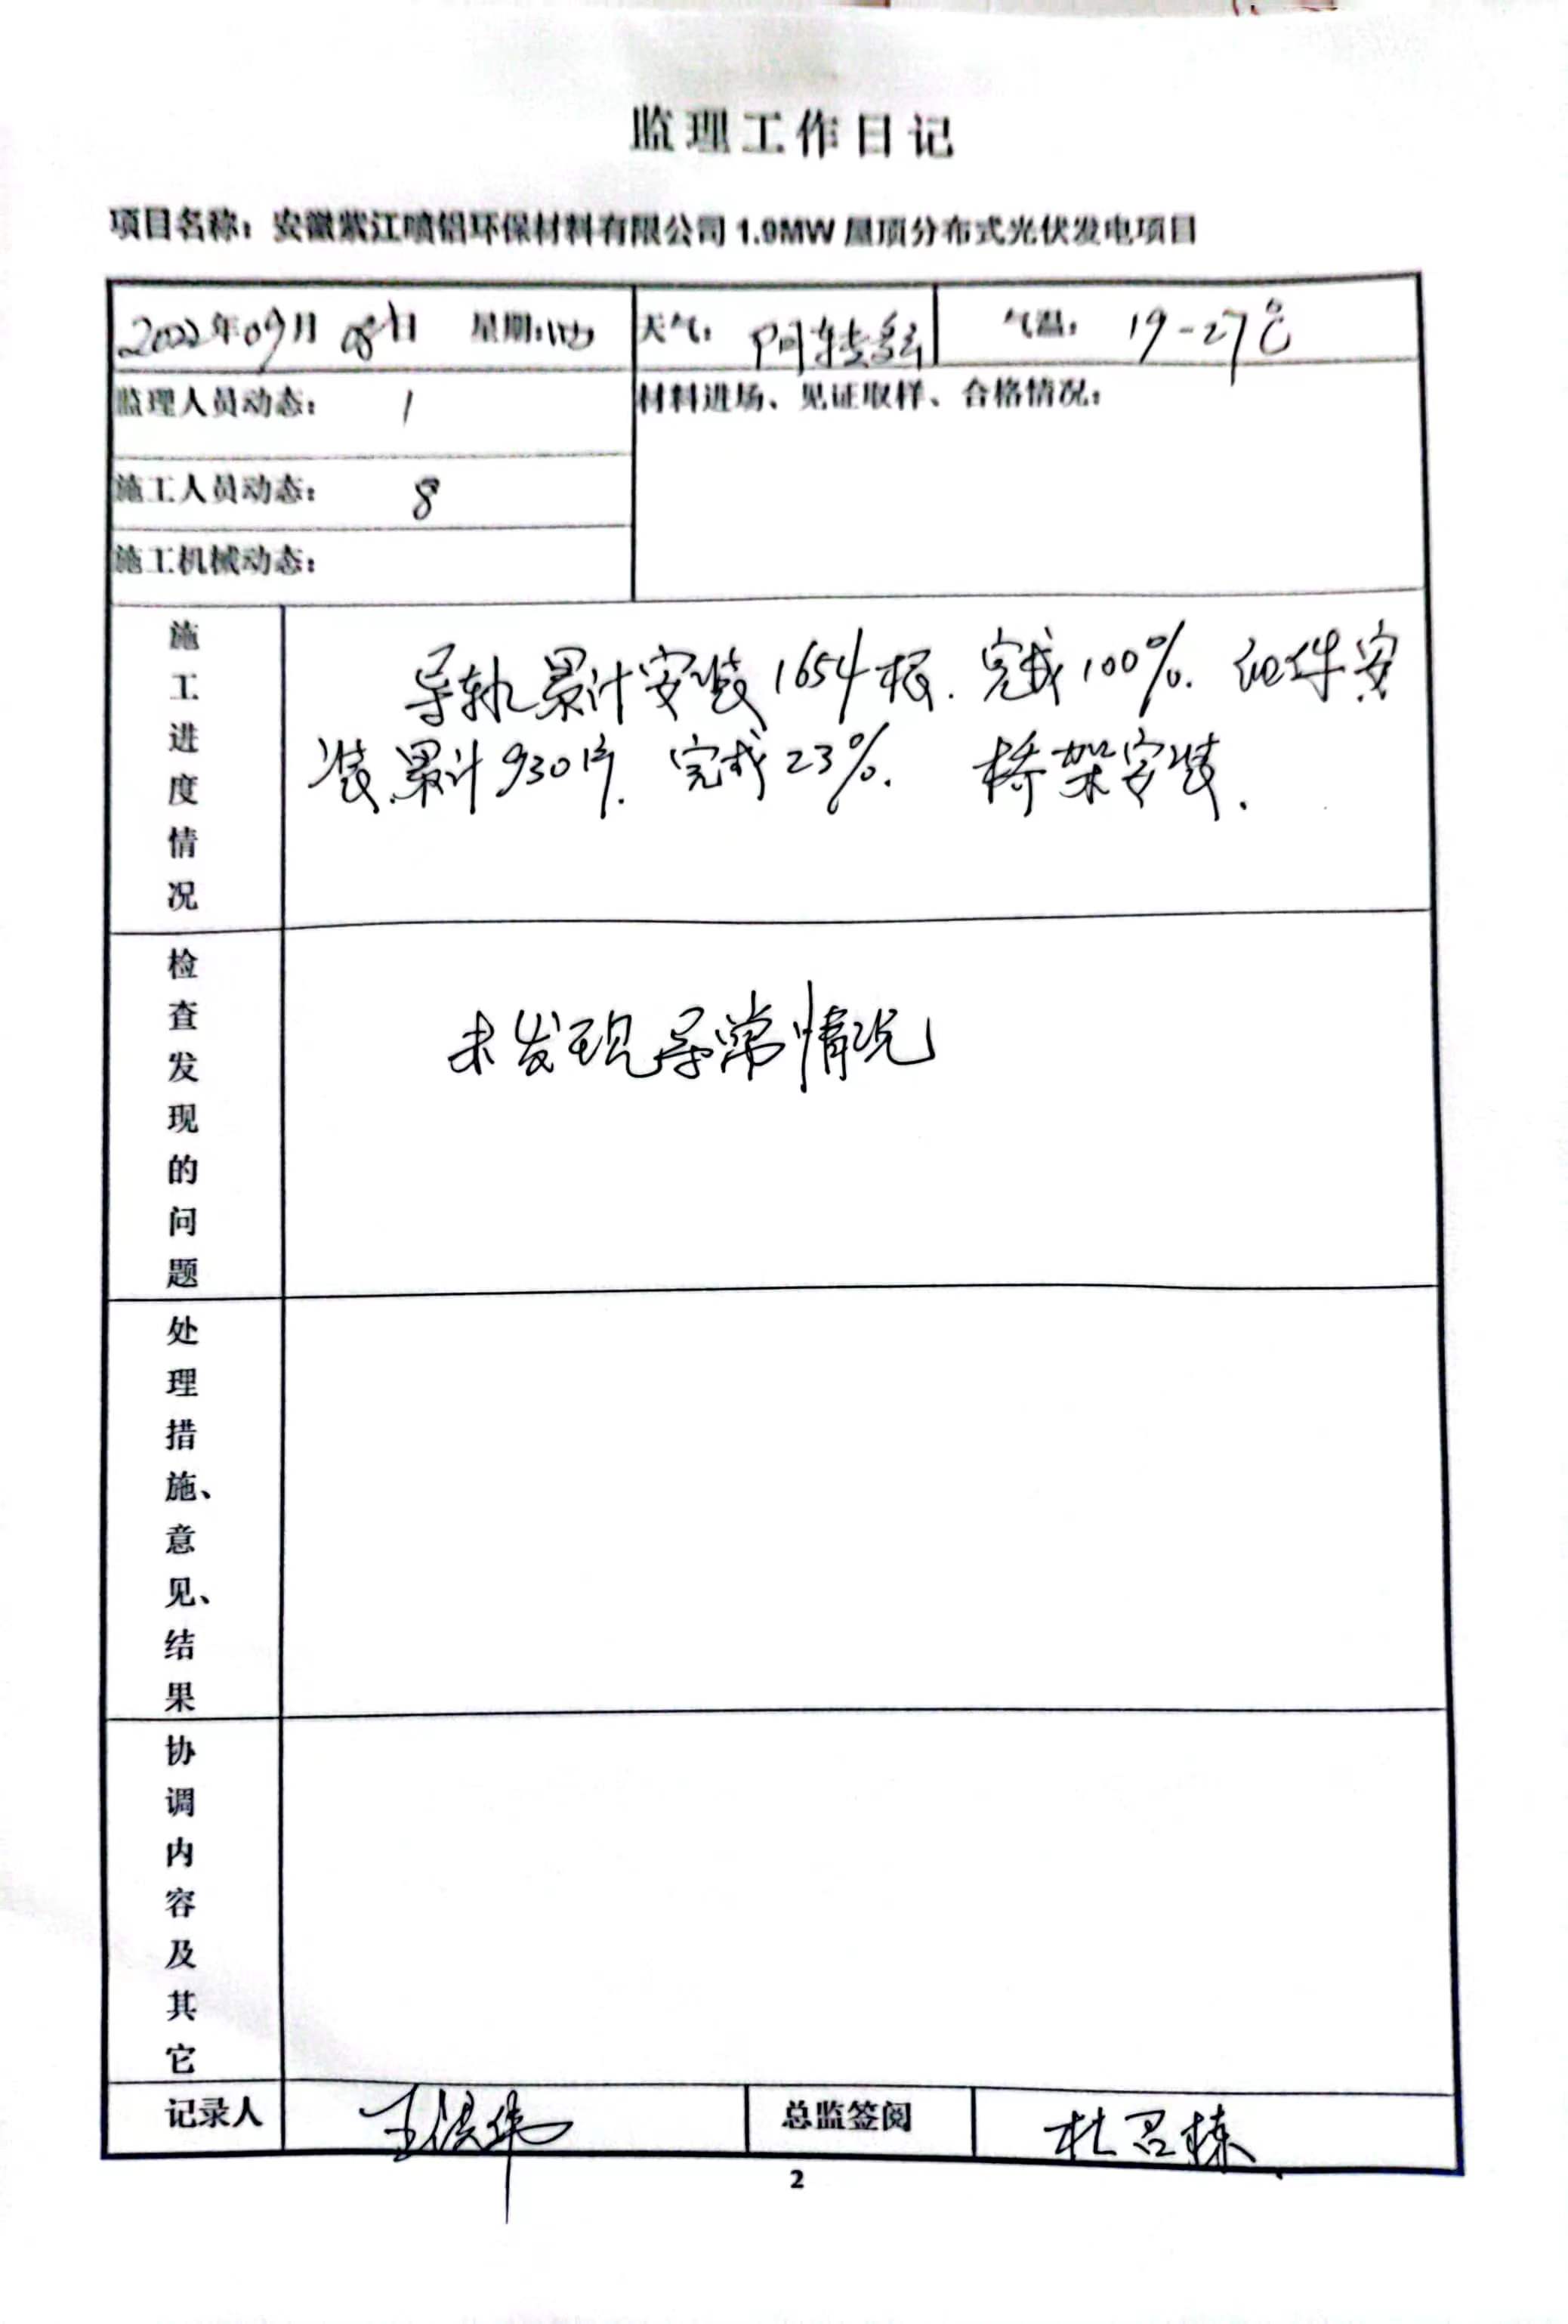 监理工作日记
项目名称：安徽紫江喷铝环保材料有限公司1.9MW屋顶分布式光伏发电项目
2022年09月08日 星期:四 天气： 阴转多云 气温： 19-27℃
监理人员动态： 1 材料进场、见证取样、合格情况：
施工人员动态： 8
施工机械动态：
施工进度情况
导轨累计安装1654根. 完成100%. 组件安
装.累计930片. 完成23%. 桥架安装.
检查发现的问题
未发现异常情况
处理措施、意见、结果
协调内容及其它
记录人 总监签阅 杜召栋
2